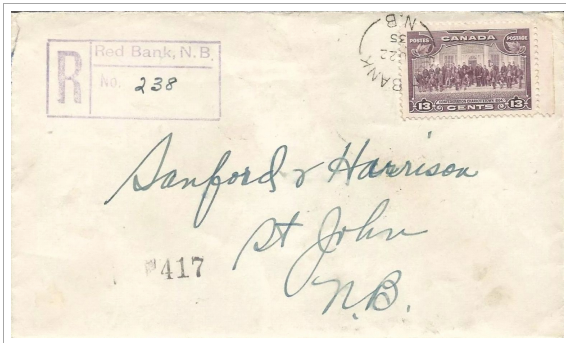 R Red Bank, N.B.
No. 238
BANK
22
35
N.B
POSTES CANADA POSTAGE
13 CENTS 13
Sanford & Harrison
St John
N.B.
417